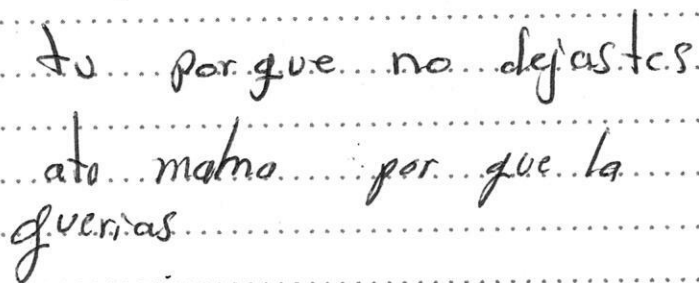 tu por que no dejastes
ato mama por que la
querias